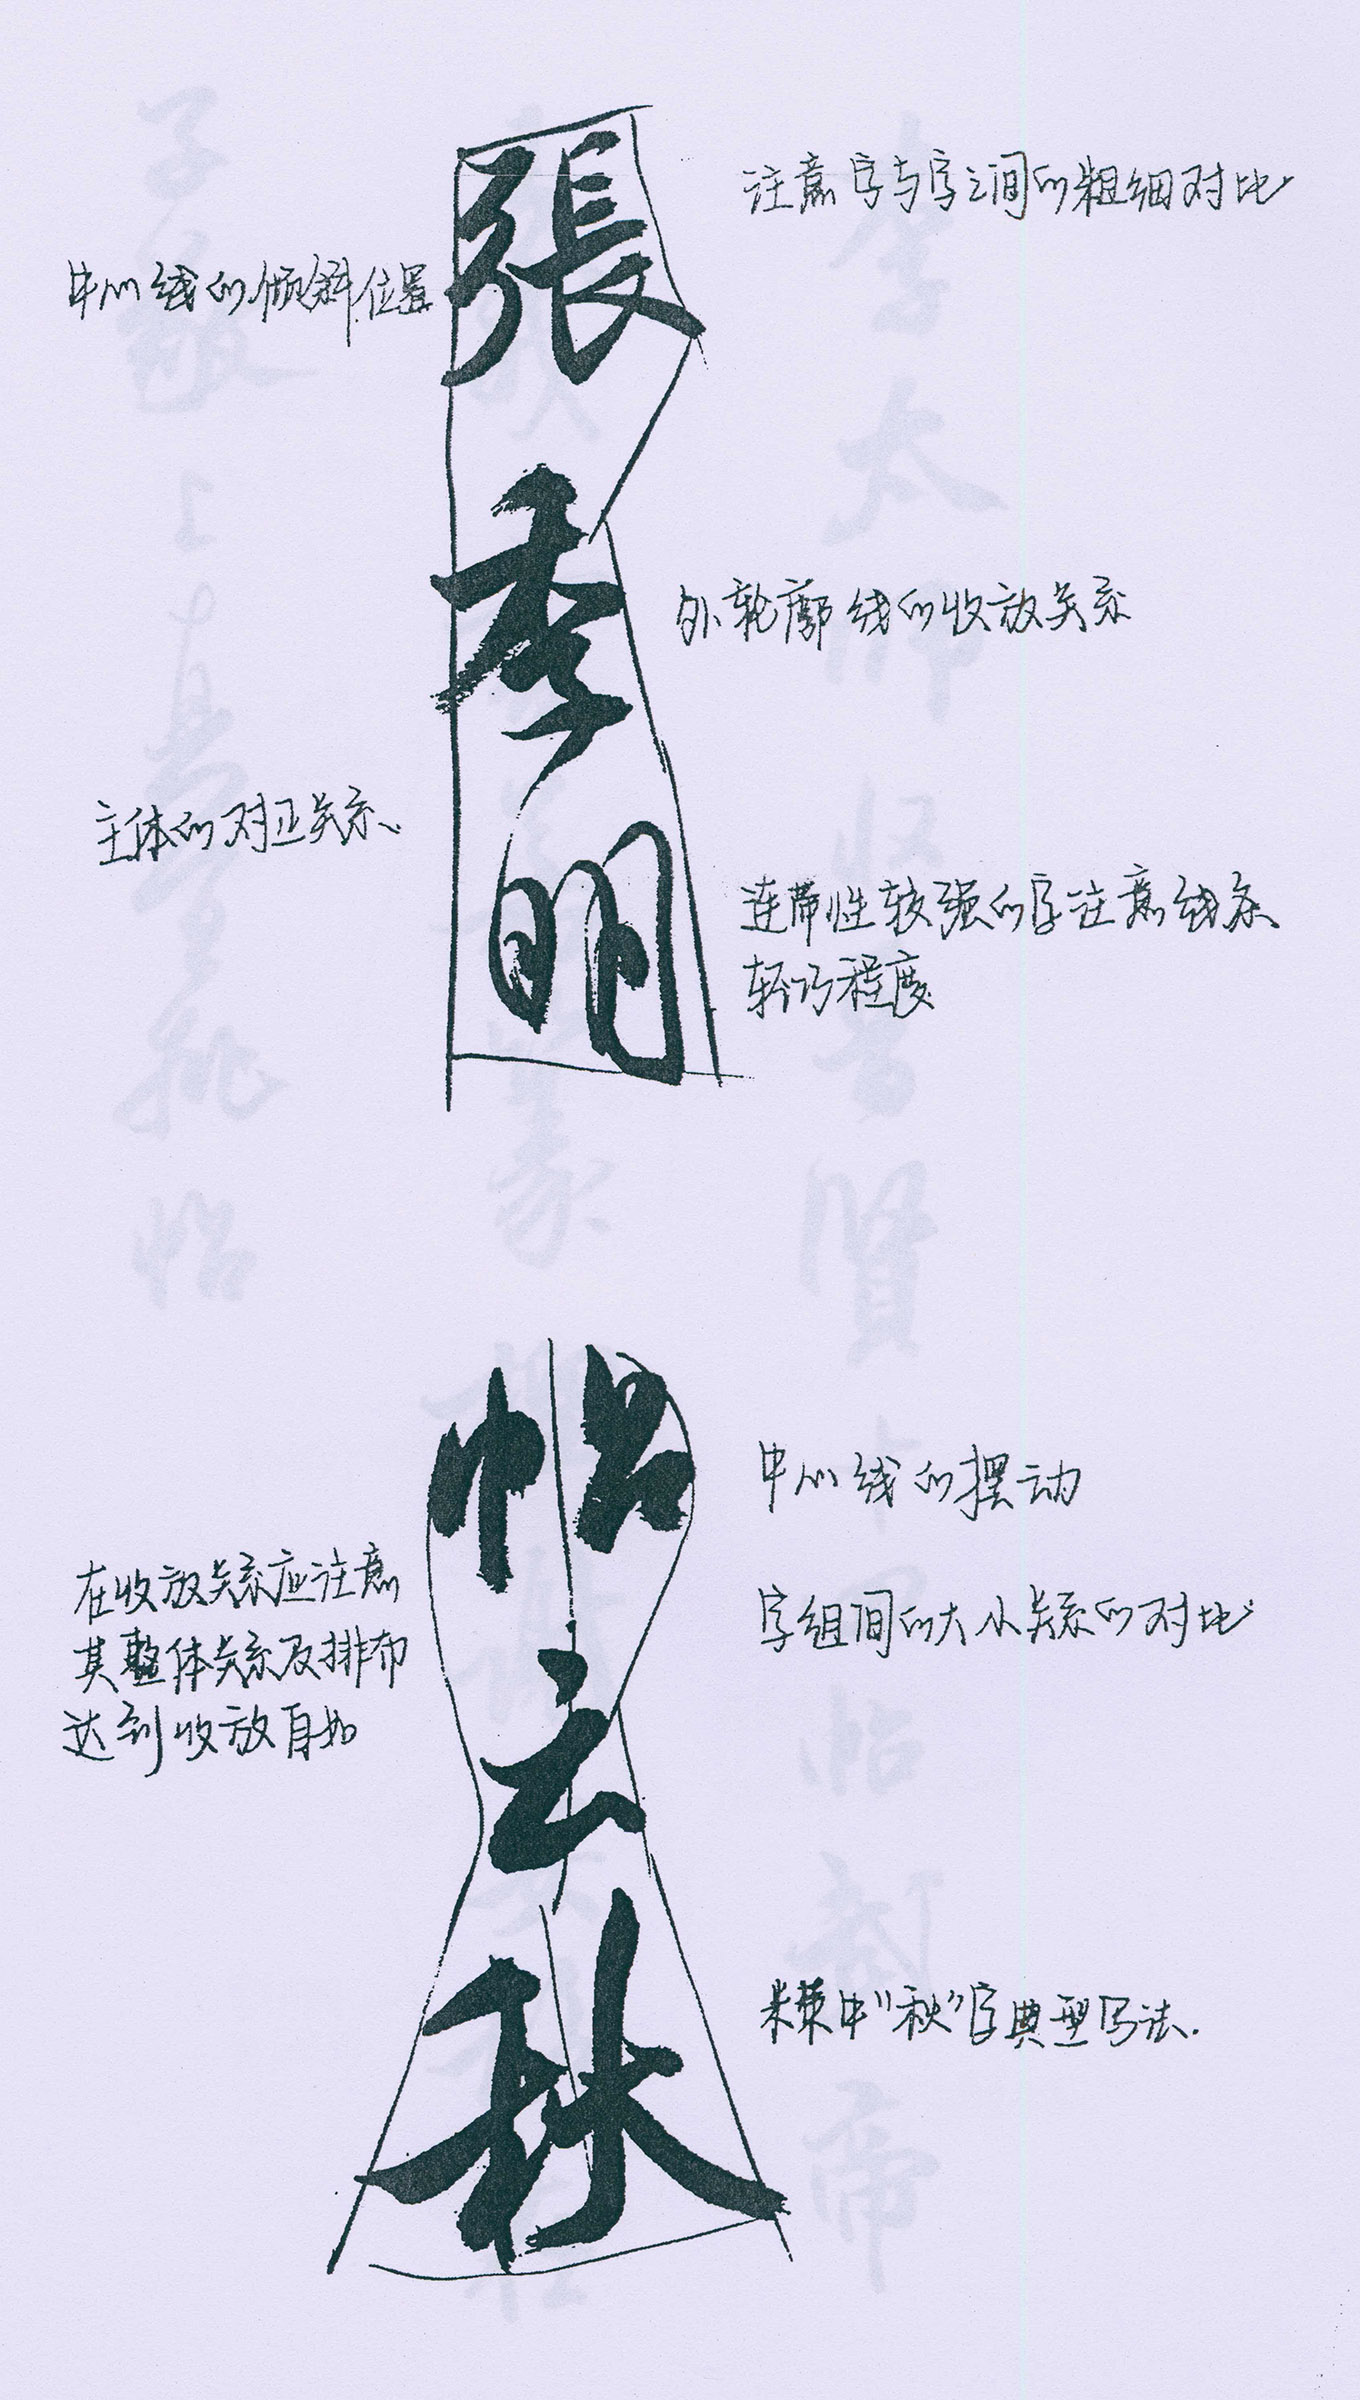 張
季
明
注意字与字之间的粗细对比
中心线的倾斜位置
外轮廓线的收放关系
主体的对正关系、
连带性较强的字注意线条
轻巧程度
帖
云
秋
中心线的摆动
字组间的大小关系的对比
在收放关系应注意
其整体关系及排布
达到收放自如
米芾中“秋”字典型写法.